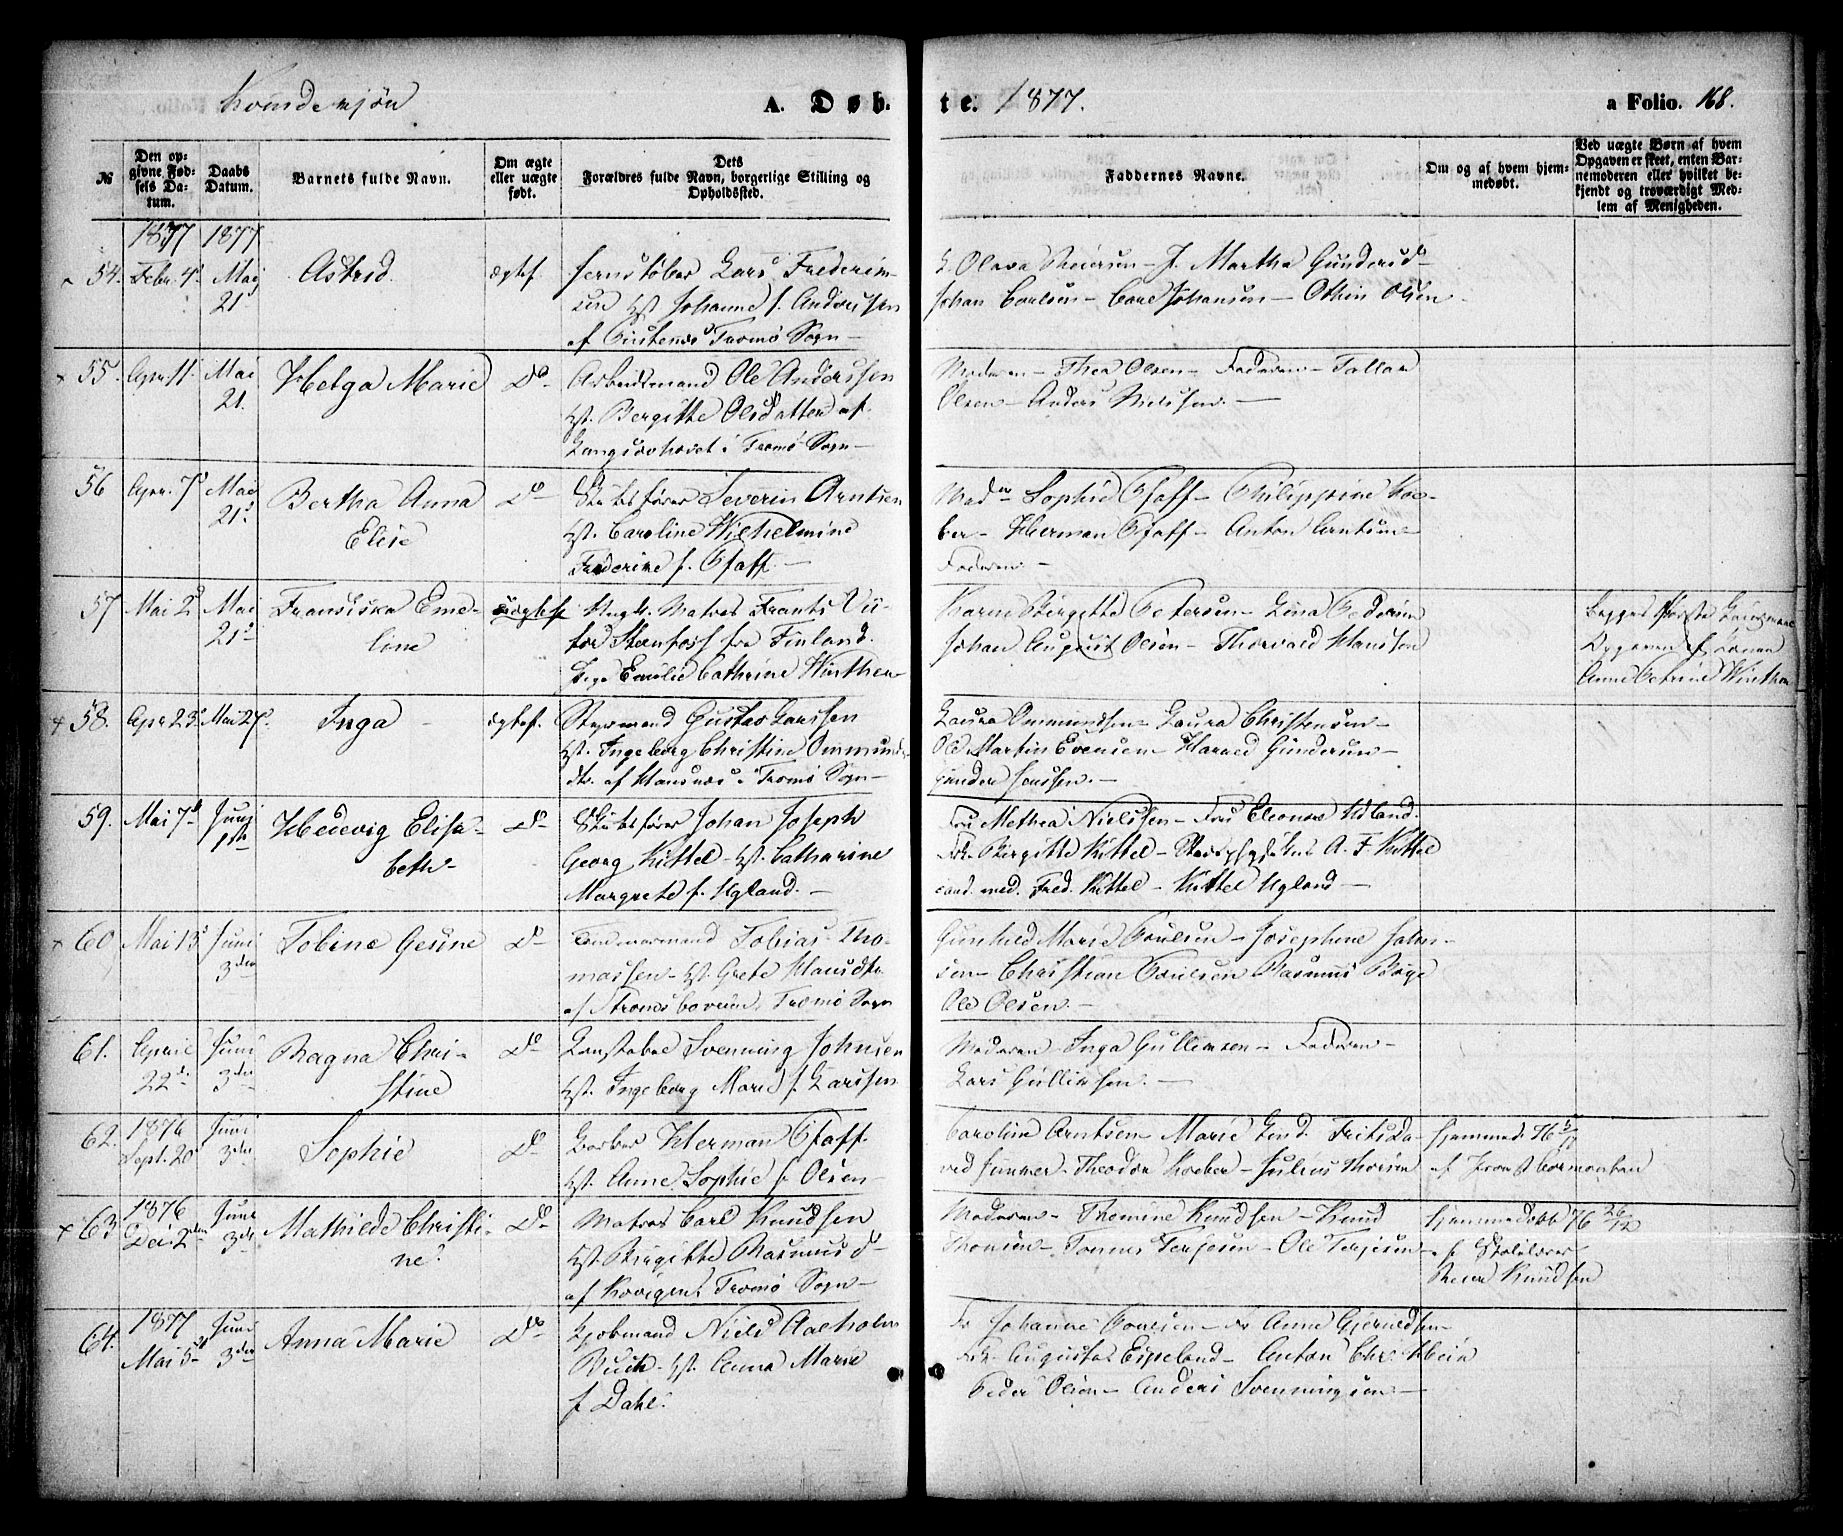 Kvindekjøn A. Døb-
te. 1877. a Folio. 168.
№
Den op-
givne Fød-
sels Da-
tum.
Daabs
Datum.
Barnets fulde Navn.
Om ægte
eller uægte
født.
Dets
Forældres fulde Navn, borgerlige Stilling og
Opholdssted.
Faddernes Navne.
Om og af hvem hjem-
medøbt.
Ved uægte Børn af hvem
Opgaven er skeet, enten Bar-
nemoderen eller hvilket be-
kjendt og troværdigt Med-
lem af Menigheden.
1877 1877
54. Febr. 4d Mai
21
Astrid
ægtef.
Jernstøber Lars Frederik-
sen Hst. Johanne f. Anderssen
af Tromø Sogn
Olava Reiersen - J. Martha Gundersd
Johan Carlsen - Carl Johansen - Othin Olsen
55. Apr. 11. Mai
21.
Helga Marie
Do
Arbeidsmand Ole Anderssen
Hst. Bergitte Olsdatter af
i Tromø Sogn
Moderen - Thea Olsen - Faderen - Tallak
Olsen - Anders Nielssen.
56 Apr. 7d Mai
21d
Bertha Anna
Elise
Do
Skibsfører Severin Arntsen
Hst. Caroline Wilhelmine
Frederike f. Pfaff.
Mad Sophie Pfaff - Philippine Koe-
ber - Herman Pfaff - Anton Arntsen
Faderen
57 Mai 2d Mai
21d
Fransiska Eme-
line
uægtef
Ungk. Matros Frants Vic-
tor Stenfors fra Finland.
Pige Emilie Cathrine Winther
Karen Birgitte Petersen - Lina Pedersen
Johan August Olsen - Thorvald Hanssen
Begges første
Opgaven af Konen
Anne Petrine Winther
58. Apr 23d Mai 27d
Inga
ægtef.
Styrmand Gustav Larssen
Hst. Ingeborg Christine Ommunds-
dtr. af Hansnæs i Tromø Sogn
Laura Ommundsen - Laura Christensen
Ole Martin Evensen - Harald Gundersen
Gunder Jenssen.
59. Mai 7d Juni
1ste
Hedevig Elisa-
beth
Do
Skibsfører Johan Joseph
Georg Kittel - Hst. Catharine
Margrete f. Ugland.
Fru Methea Nielssen - Fru Eleonore Ugland.
Frk. Birgitte Kittel - A. F. Kittel
cand. med. Fred. Kittel - Kittel Ugland
60 Mai 13d Juni
3die
Tobine Gesine
Do
Tømmermand Tobias Tho-
massen - Hst. Grete Hansdtr
af Tromø Sogn
Gunhild Marie Poulsen - Josephine Johan-
sen - Christian Poulsen Rasmus Bøge
Ole Olsen
61. April
22de Juni
3die
Ragna Chri-
stine
Do
Konstabel Svenning Johnsen
Hst. Ingeborg Marie f. Larssen
Moderen - Inga Gulliksen - Faderen
Lars Gulliksen.
62. 1876
Sept. 20 Juni
3die
Sophie
Do
Barber Herman Pfaff.
Hst. Anne Sophie f. Olsen
Caroline Arntsen - Marie
Theodor Koeber - Julius Thorsen
hjemmed. 76
af Jordemoderen
63 1876
Dec. 2den Juni
3die
Mathilde Christi-
ne.
Do
Matros Carl Knudsen
Hst. Birgitte Rasmusd
af Tromø Sogn
Moderen - Thomine Knudsen - Knud
Thomsen - Tønnes Terjesen - Ole Terjesen
hjemmedøbt 76 26/12
af Skolelærer
Reier Knudsen
64. 1877
Mai 5 Juni
3die
Anna Marie
Do
Kjøbmand Niels Aalholm
Buch - Hst. Anna Marie
f. Dahl.
Fr Johanne Poulsen - Fr Anne Gjeruldsen
Frk. Augusta Espeland - Anton Chr. Klein
Peder Olsen - Anders Svenningsen